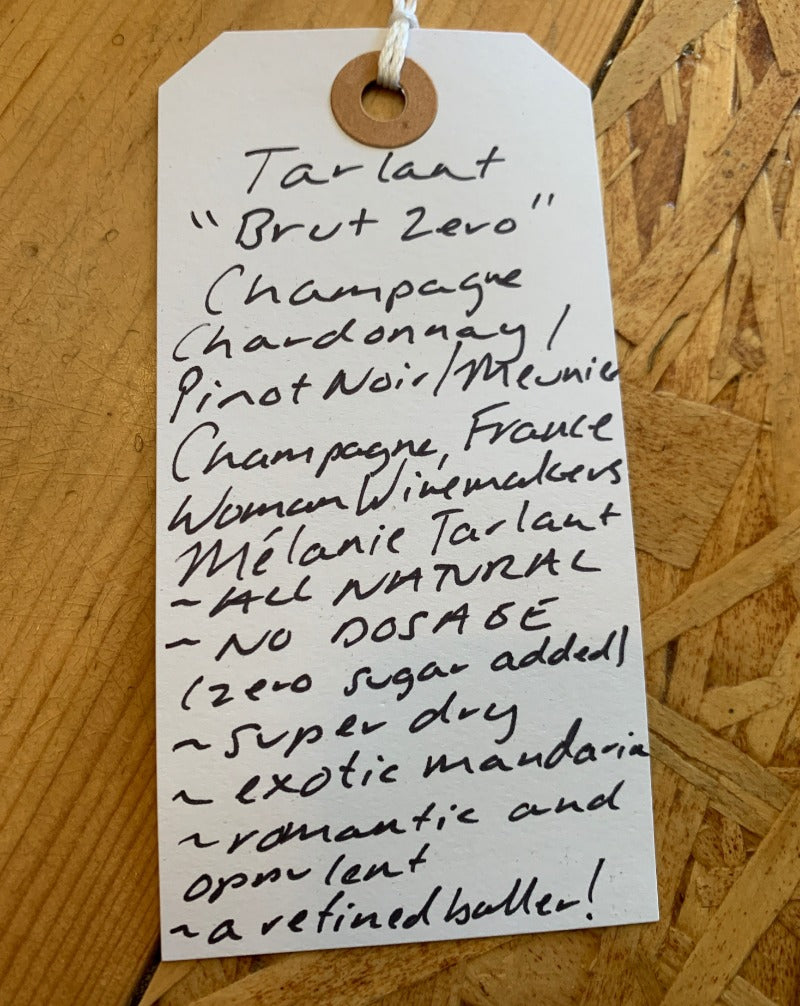 Tarlant
"Brut Zero"
Champagne
Chardonnay/
Pinot Noir/Meunier
Champagne, France
Woman Winemakers
Mélanie Tarlant
~ALL NATURAL
~NO DOSAGE
(zero sugar added)
~super dry
~exotic mandarin
~romantic and
oppulent
~a refined baller!